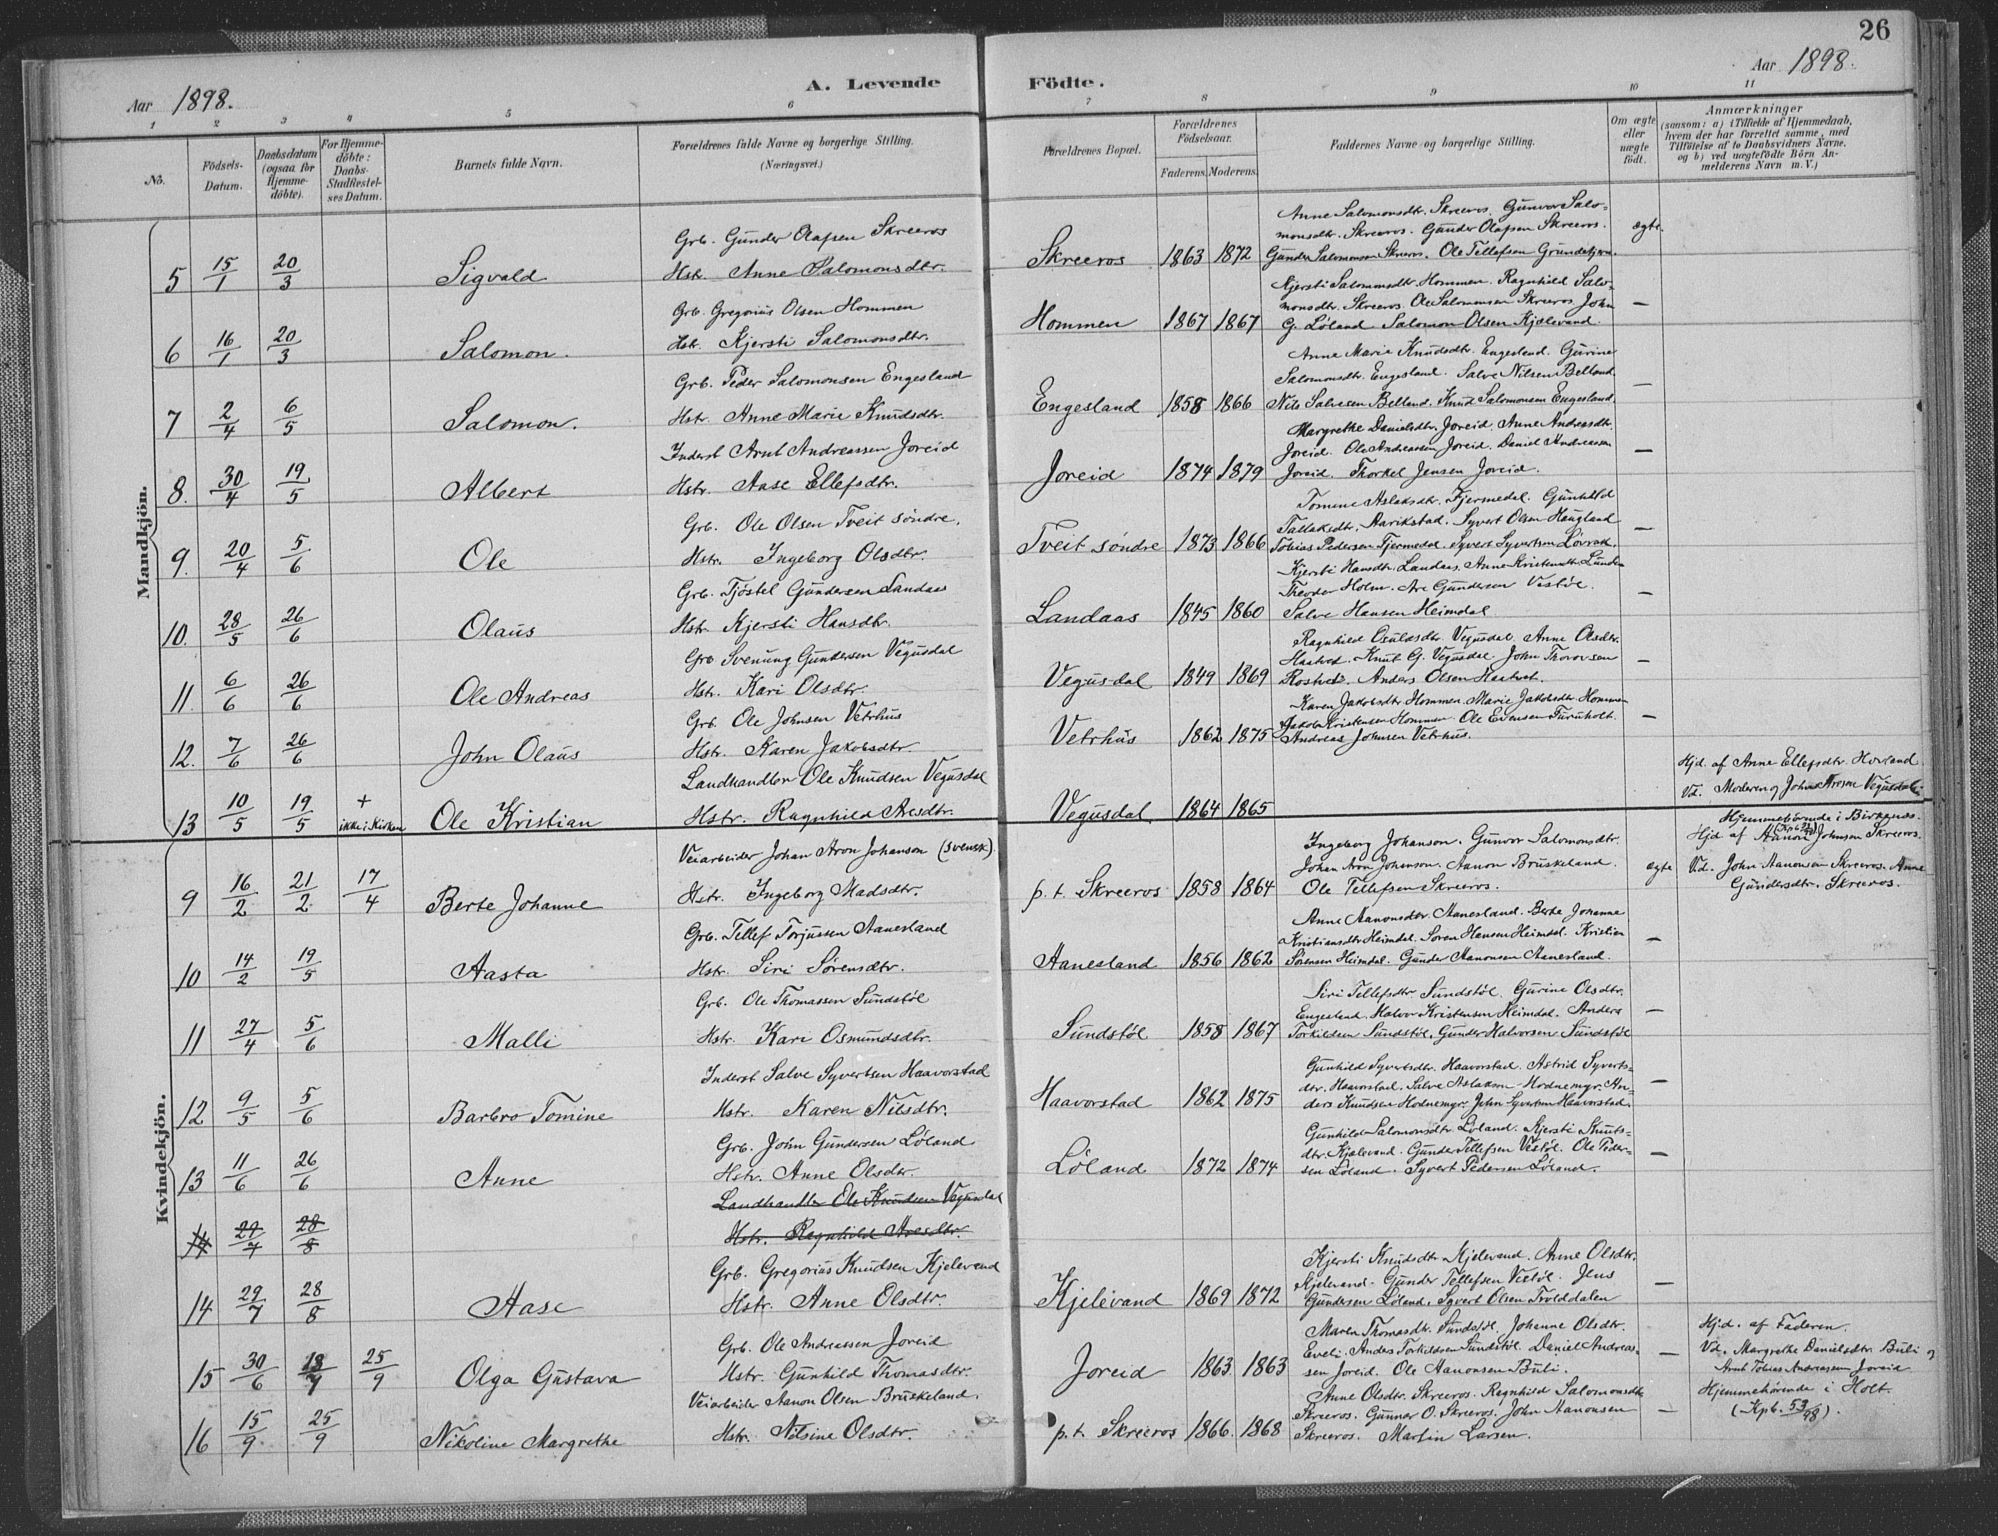 26
Aar 1898.
A. Levende Födte.
Aar 1898.
1 2 3 4 5 6 7 8 9 10 11
No.
Födsels-Datum.
Daabsdatum (ogsaa for Hjemme-döbte).
For Hjemme-döbte: Daabs-Stadfæstel-ses Datum.
Barnets fulde Navn.
Forældrenes fulde Navne og borgerlige Stilling. (Næringsvei.)
Forældrenes Bopæl.
Forældrenes Födselsaar.
Faderens. Moderens.
Faddernes Navne og borgerlige Stilling.
Om ægte eller uægte födt.
Anmærkninger
(saasom: a) i Tilfælde af Hjemmedaab, hvem der har forrettet samme, med Tilföielse af to Daabsvidners Navne, og b) ved uægtefödte Börn An-melderens Navn m. V.)
Mandkjön.
Grb. Gunder Olafsen Skreros
5 15/1 20/3 Sigvald Hstr. Anne Salomonsdtr. Skreros 1863 1872
Anne Salomonsdtr. Skreros. Gunvor Salo-
monsdtr. Skreros. Gunder Olafsen Skreros. ægte
Gunder Salomonsen Skreros. Ole Tellefsen Grundetjern.
Grb. Gregorius Olsen Hommen
6 16/1 20/3 Salomon. Hstr. Kjersti Salomonsdtr. Hommen 1867 1867
Kjersti Salomonsdtr. Hommen. Ragnhild Salo-
monsdtr. Skreros. Ole Salomonsen Skreros. John —
G. Løland. Salomon Olsen Kjælevand.
Grb. Peder Salomonsen Engesland
7 2/4 6/5 Salomon. Hstr. Anne Marie Knudsdtr. Engesland 1858 1866
Anne Marie Knudsdtr. Engesland. Gurine
Salomonsdtr. Engesland. Salve Nilsen Belland. —
Nils Salvesen Belland. Knud Salomonsen Engesland.
Inderst Arnt Andreassen Joreid
8. 30/4 19/5 Albert Hstr. Aase Ellefsdtr. Joreid 1874 1879
Margrethe Danielsdtr. Joreid. Anne Andreasdtr.
Joreid. Ole Andreassen Joreid. Daniel Andreassen —
Joreid. Thorkel Jensen Joreid.
Grb. Ole Olsen Tveit søndre.
9. 20/4 5/6 Ole Hstr. Ingeborg Olsdtr. Tveit søndre 1873 1866
Tomine Aslaksdtr. Tjermedal. Gunhild
Tallaksdtr. Aarikstad. Syvert Olsen Haugland —
Tobias Pedersen Tjermedal. Syvert Syvertsen
Grb. Tjøstel Gundersen Landaas
10. 28/5 26/6 Olaus Hstr. Kjersti Hansdtr. Landaas 1845 1860
Kjersti Hansdtr. Landaas. Anne Kristensdtr.
Theodor Holm. Are Gundersen Vestøl. —
Salve Hansen Heimdal
Grb. Svenung Gundersen Vegusdal
11. 6/6 26/6 Ole Andreas Hstr. Kari Olsdtr. Vegusdal 1849 1869
Ragnhild Osuldsdtr. Vegusdal. Anne Olsdtr.
Haatvet. Knut G. Vegusdal. John Thorovsen —
Rostvei. Anders Olsen Haatvet.
Grb. Ole Johnsen Vetrhus
12. 7/6 26/6 John Olaus Hstr. Karen Jakobsdtr. Vetrhus 1862 1875
Karen Jakobsdtr. Hommen. Marie Jakobsdtr. Hommen
Jakob Kristensen Hommen. Ole Evensen Furuholt. —
Andreas Johnsen Vetrhus.
Landhandler Ole Knudsen Vegusdal
13 10/5 19/5 + ikke i Kirken Ole Kristian Hstr. Ragnhild Aresdtr. Vegusdal 1864 1865
Hjd. af Anne Ellefsdtr. Hovland
Vd. Moderen og John Aresen Vegusdal.
Kvindekjön.
Veiarbeider Johan Aron Johanson (svensk).
9 16/2 21/2 17/4 Berte Johanne Hstr. Ingeborg Madsdtr. p. t. Skreros 1858 1864
Ingeborg Johanson. Gunvor Salomonsdtr.
Johan Aron Johanson. Aanon Bruskeland. ægte
Ole Tellefsen Skreros.
Hjemmehørende i Birkenes.
Hjd af Aanon Johnsen Skreros.
Vd. John Aanonsen Skreros. Anne
Gundersdtr. Skreros.
Grb. Tellef Torjussen Aanesland
10 14/2 19/5 Aasta Hstr. Siri Sørensdtr. Aanesland 1856 1862
Anne Aanonsdtr. Aanesland. Berte Johanne
Kristiansdtr Heimdal. Søren Hansen Heimdal. Kristian —
Sørensen Heimdal. Gunder Aanonsen Aanesland.
Grb. Ole Thomassen Sundstøl
11 27/4 5/6 Malli Hstr. Kari Osmundsdtr. Sundstøl 1858 1867
Siri Tellefsdtr Sundstøl. Gurine Olsdtr.
Engesland. Halvor Kristensen Heimdal. Anders —
Torkildsen Sundstøl. Gunder Halvorsen Sundstøl
Inderst Salve Syvertsen Haavorstad
12 9/5 5/6 Barbro Tomine Hstr. Karen Nilsdtr. Haavorstad 1862 1875
Gunhild Syvertsdtr. Haavorstad. Astrid Syverts-
dtr. Haavorstad. Salve Aslaksen Hodnemyr. An- —
ders Knudsen Hodnemyr. John Syvertsen Haavorstad.
Grb. John Gundersen Løland
13 11/6 26/6 Anne Hstr. Anne Olsdtr. Løland 1872 1874
Gunhild Salomonsdtr Løland. Kjersti Knuts-
dtr. Kjelevand. Gunder Tellefsen Vestøl. Ole Peder- —
sen Løland. Syvert Pedersen Løland.
Landhandler Ole Knudsen Vegusdal
14 29/7 28/8 Hstr. Ragnhild Aresdtr.
Grb. Gregorius Knudsen Kjelevand
14 29/7 28/8 Aase Hstr. Anne Olsdtr. Kjelevand 1869 1872
Kjersti Knudsdtr Kjelevand. Anne Olsdtr.
Kjelevand. Gunder Tellefsen Vestøl. Jens —
Gundersen Løland. Syvert Olsen Trolddalen
Grb. Ole Andreassen Joreid
15 30/6 13/7 25/9 Olga Gustava Hstr. Gunhild Thomasdtr. Joreid 1863 1863
Maren Thomasdtr. Sundstøl. Johanne Olsdtr.
Eveli. Andes Torkildsen Sundstøl. Daniel Andreas- —
sen Joreid. Ole Aanonsen Buli.
Hjd. af Faderen.
Vd. Margrethe Danielsdtr. Buli og
Arnt Tobias Andreassen Joreid
Veiarbeider Aanon Olsen Bruskeland.
16 15/9 25/9 Nikoline Margrethe Hstr. Nilsine Olsdtr. p. t. Skreros 1866. 1868
Anne Olsdtr. Skreros. Ragnhild Salomonsdtr
Skreros. Gunnar O. Skreros. John Aanonsen —
Skreros. Martin Larsen.
Hjemmehørende i Holt.
(Kpb. 53/98).